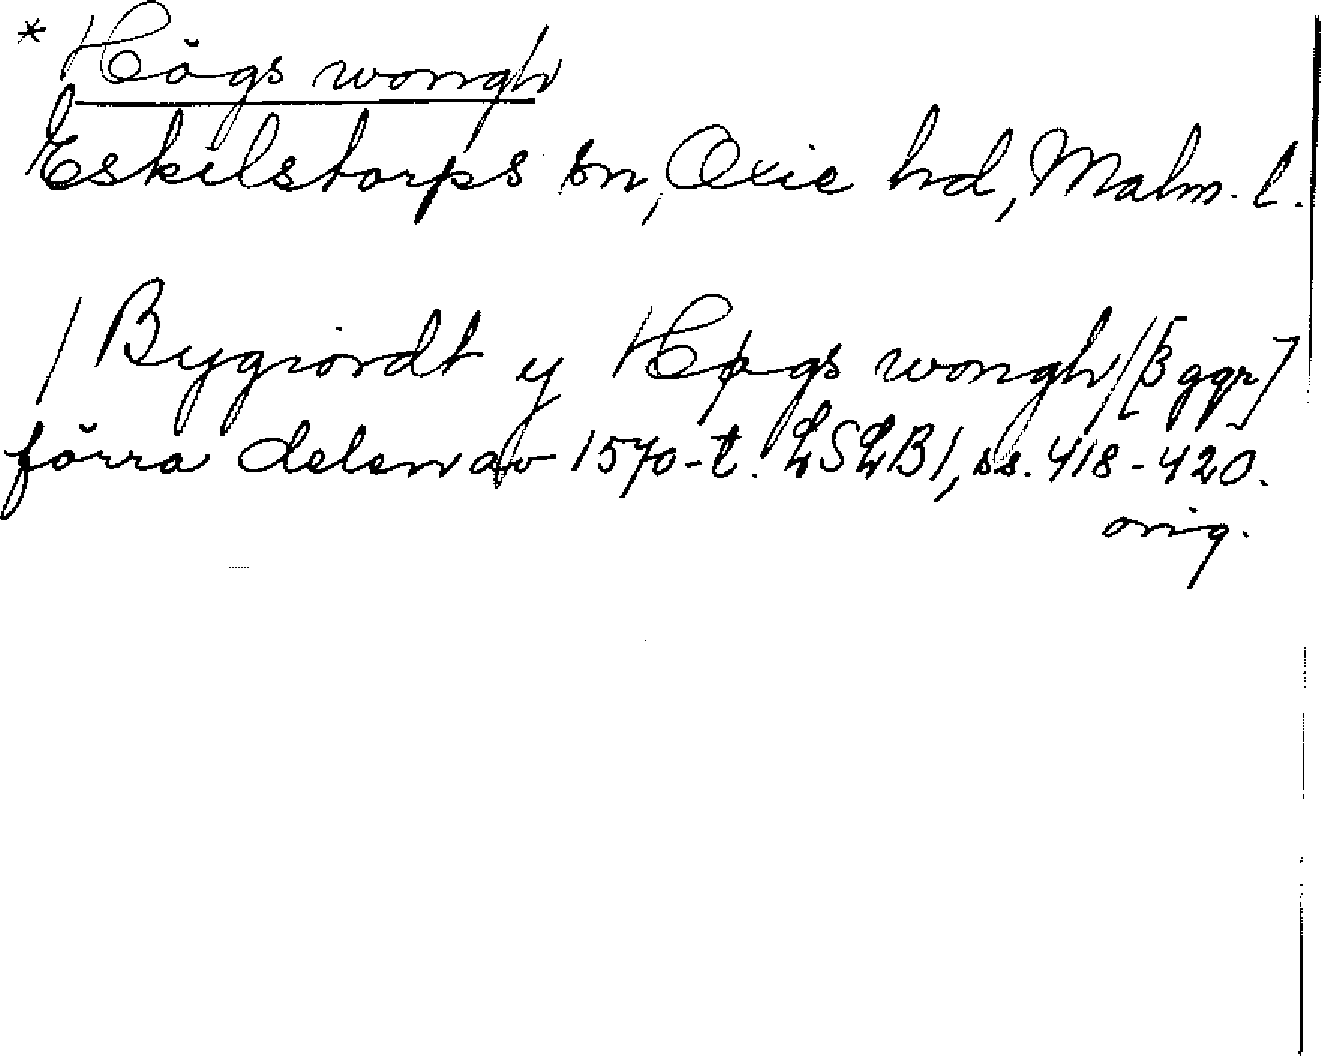 * Högs wongh
Eskilstorps sn, Oxie hd, Malm. l.
/ Bygiordt y Høgs wongh / [3 ggr]
förra delen av 1570-t. LSLB 1, ss. 418-420.
orig.